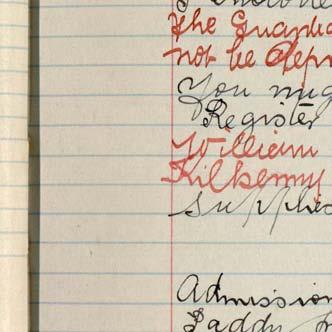 the Guardia
not be depr
You mig
Register
William
Kilkenny
supplie
Admission
Paddy